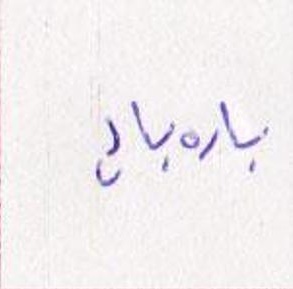 باره باغ